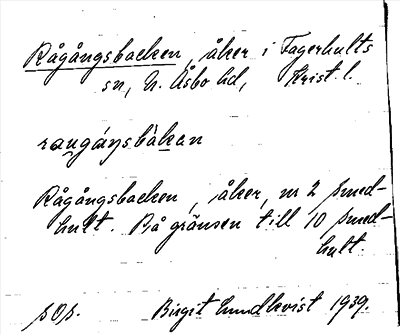 Rågångsbacken, åker i Fagerhults
sn, N. Åsbo hd, Krist. l.
raugángsbàkan
Rågångsbacken, åker, nr 2 Smed-
hult. På gränsen till 10 Smed-
hult.
Birgit Lundkvist 1939.